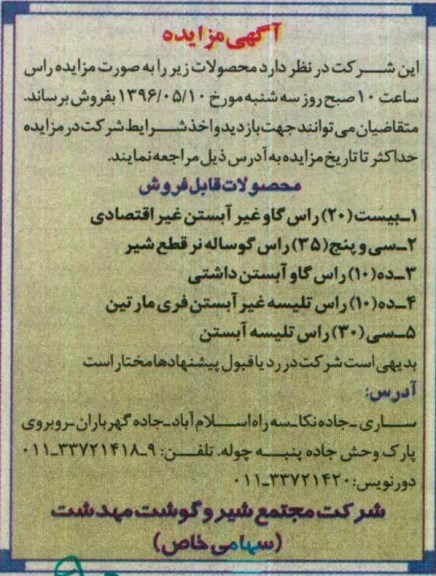 آگهی مزایده
این شرکت در نظر دارد محصولات زیر را به صورت مزایده راس
ساعت ۱۰ صبح روز سه شنبه مورخ ۱۳۹۶/۰۵/۱۰ بفروش برساند.
متقاضیان می توانند جهت بازدید و اخذ شرایط شرکت در مزایده
حداکثر تا تاریخ مزایده به آدرس ذیل مراجعه نمایند.
محصولات قابل فروش
۱ـ بیست (۲۰) راس گاو غیر آبستن غیر اقتصادی
۲ـ سی و پنج (۳۵) راس گوساله نر قطع شیر
۳ـ ده (۱۰) راس گاو آبستن داشتی
۴ـ ده (۱۰) راس تلیسه غیر آبستن فری مارتین
۵ـ سی (۳۰) راس تلیسه آبستن
بدیهی است شرکت در رد یا قبول پیشنهادها مختار است
آدرس:
ساری ـ جاده نکا ـ سه راه اسلام آباد ـ جاده گهرباران ـ روبروی
پارک وحش جاده پنبه چوله. تلفن: ۹ـ۳۳۷۲۱۴۱۸ـ۰۱۱
دورنویس: ۳۳۷۲۱۴۲۰ـ۰۱۱
شرکت مجتمع شیر و گوشت مهدشت
(سهامی خاص)